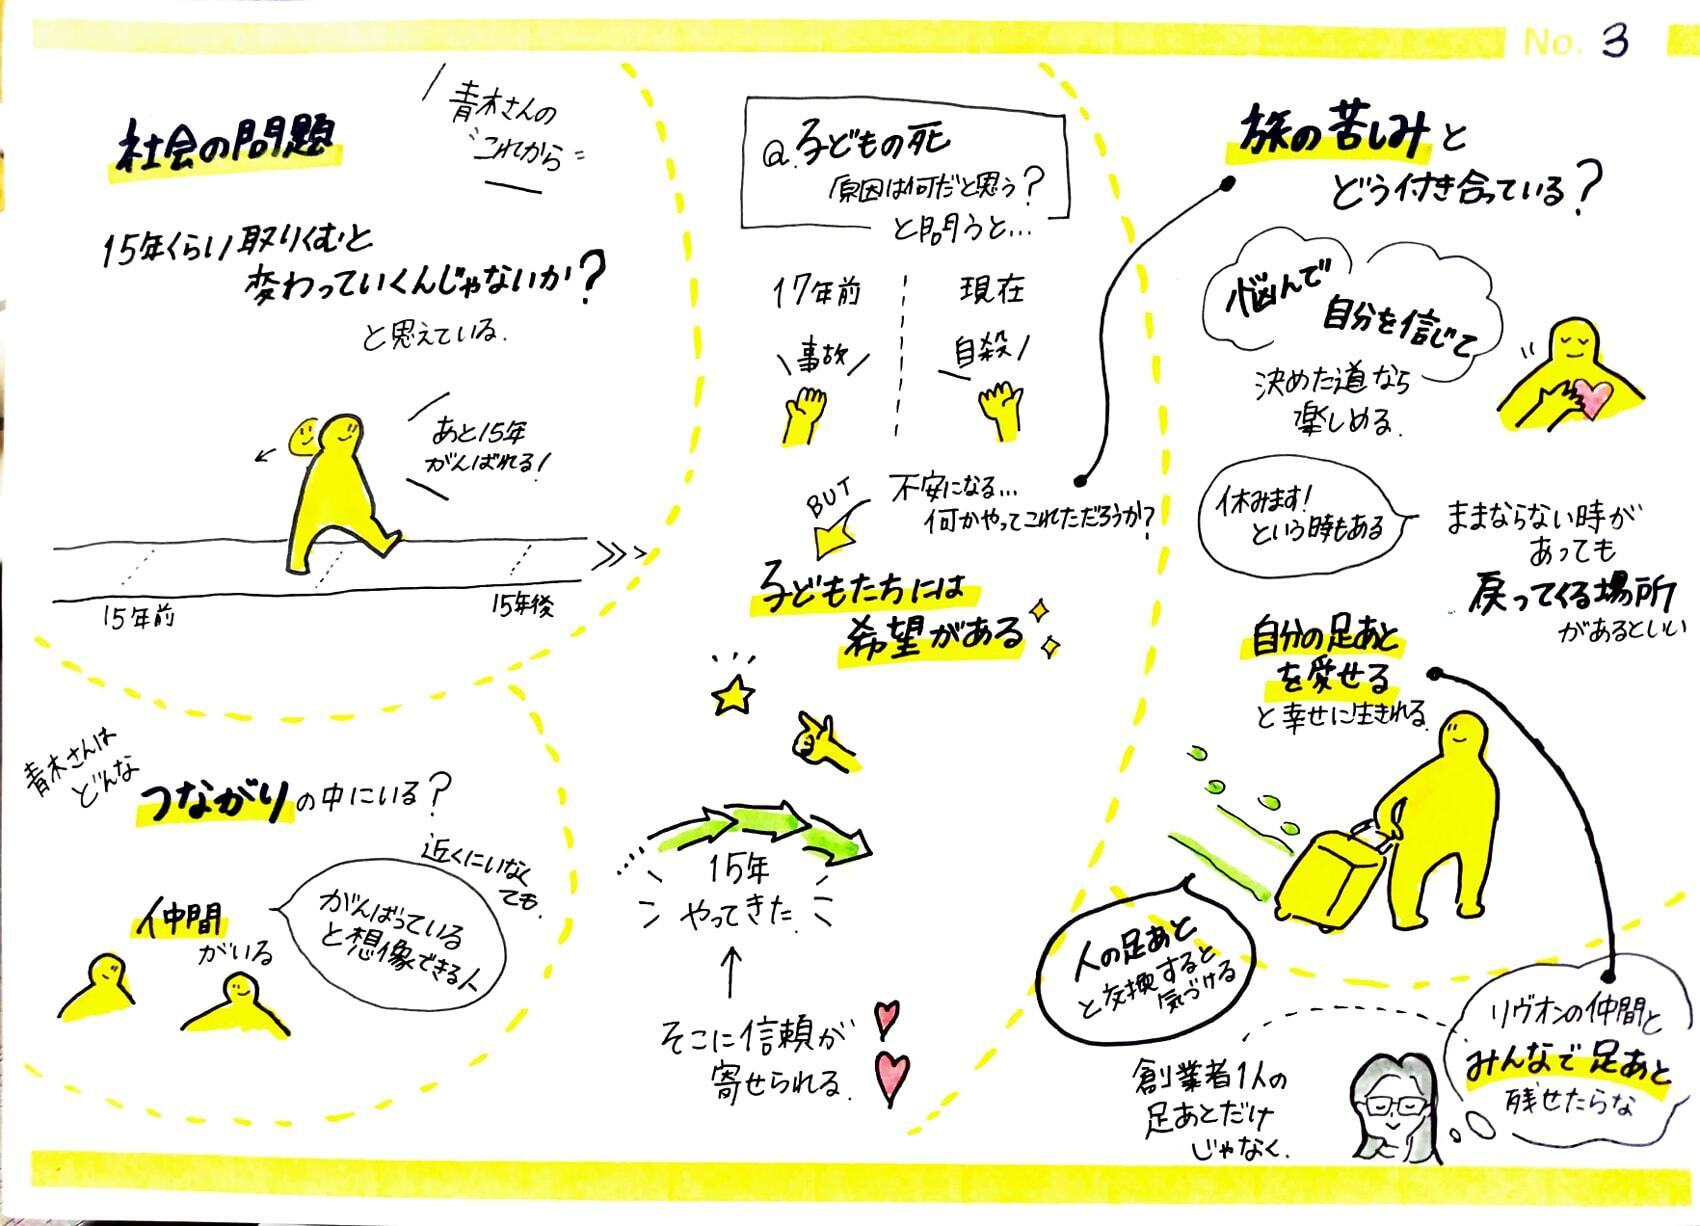 No. 3
社会の問題
青木さんの
"これから"
15年くらい取りくむと
変わっていくんじゃないか?
と思えている.
あと15年
がんばれる!
15年前
15年後
青木さんは
どんな
つながりの中にいる?
仲間
がいる
近くにいなく
ても.
がんばっている
と想像できる人
Q.子どもの死
原因は何だと思う?
と問うと...
17年前
現在
事故
自殺
BUT
不安になる...
何かやってこれただろうか?
子どもたちには
希望がある
15年
やってきた
そこに信頼が
寄せられる.
旅の苦しみと
どう付き合っている?
悩んで
自分を信じて
決めた道なら
楽しめる.
休みます!
という時もある
ままならない時が
あっても
戻ってくる場所
があるといい
自分の足あと
を愛せる
と幸せに生きれる
人の足あと
と交換すると
気づける
創業者1人の
足あとだけ
じゃなく.
リヴオンの仲間と
みんなで足あと
残せたらな